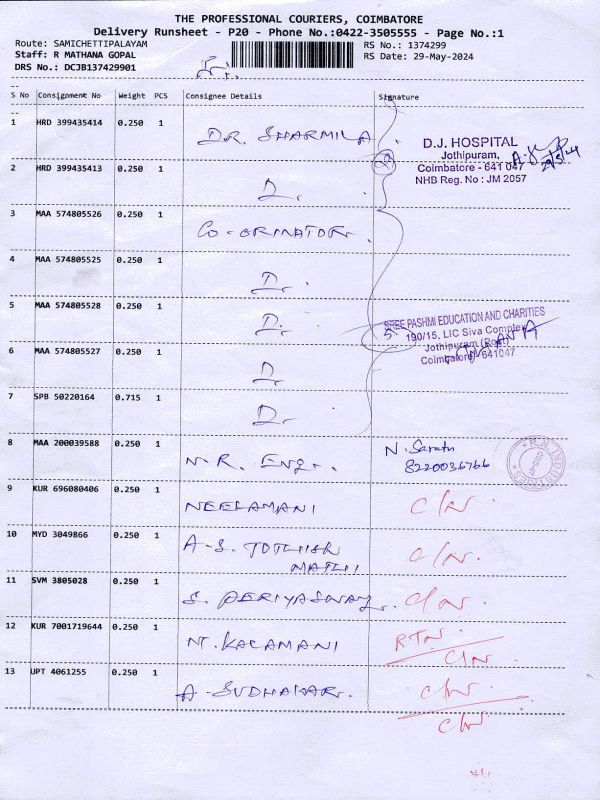 THE PROFESSIONAL COURIERS, COIMBATORE
Delivery Runsheet - P20 - Phone No.:0422-3505555 - Page No.:1
Route: SAMICHETTIPALAYAM
RS No.: 1374299
Staff: R MATHANA GOPAL
RS Date: 29-May-2024
DRS No.: DCJB137429901
S No Consignment No Weight PCS Consignee Details Signature
1 HRD 399435414 0.250 1 DR. SHARMILA.
D.J. HOSPITAL
Jothipuram,
Coimbatore - 641 047
NHB Reg. No : JM 2057
29/5/24
2 HRD 399435413 0.250 1 D.
3 MAA 574805526 0.250 1 CO-ORINATOR.
4 MAA 574805525 0.250 1 D.
5 MAA 574805528 0.250 1 D.
5
SREE PASHMI EDUCATION AND CHARITIES
190/15, LIC Siva Complex
Jothipuram (Post)
Coimbatore - 641047
6 MAA 574805527 0.250 1 D
7 SPB 50220164 0.715 1 D.
8 MAA 200039588 0.250 1 N.R. ENGr. N. Saratn
8220036766
9 KUR 696080406 0.250 1 NEELAMANI C/N
10 MYD 3049866 0.250 1 A-S. JOTHISH C/N.
MATHI
11 SVM 3805028 0.250 1 S. PERIYASWAY. C/N.
12 KUR 7001719644 0.250 1 NT. KALAMANI RTN.
C/N
13 UPT 4061255 0.250 1 A-SUDHAKAR. C/N
C/N